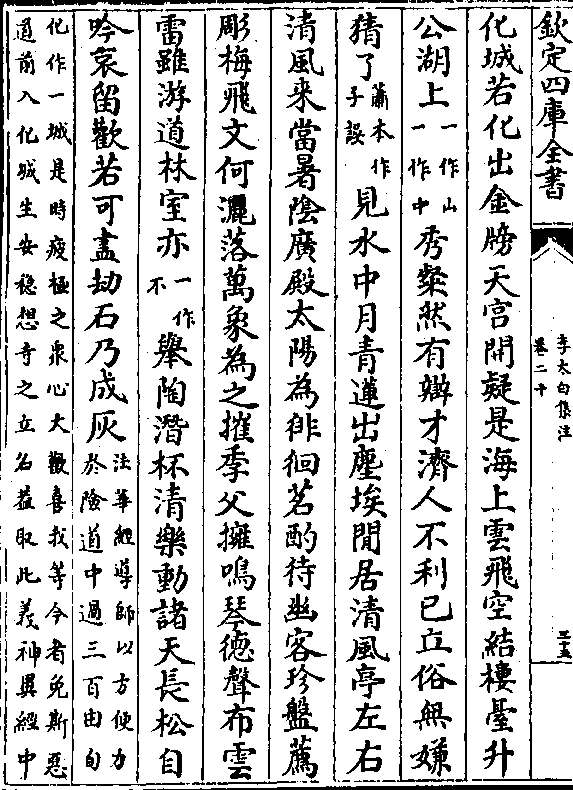 欽定四庫全書
李太白集注
卷二十
三十五
化城若化出金牓天宮開疑是海上雲飛空結樓臺升
公湖上一作山一作中秀粲然有辯才濟人不利己立俗無嫌
猜了蕭本作子誤見水中月青蓮出塵埃閒居清風亭左右
清風來當暑陰廣殿太陽為徘徊茗酌待幽客珍盤薦
彫梅飛文何灑落萬象為之摧季父擁鳴琴德聲布雲
雷雖游道林室亦一作不舉陶潛杯清樂動諸天長松自
吟哀留歡若可盡劫石乃成灰法華經導師以方便力於險道中過三百由旬
化作一城是時疲極之衆心大歡喜我等今者免斯惡道前入化城生安穩想寺之立名蓋取此義神異經中